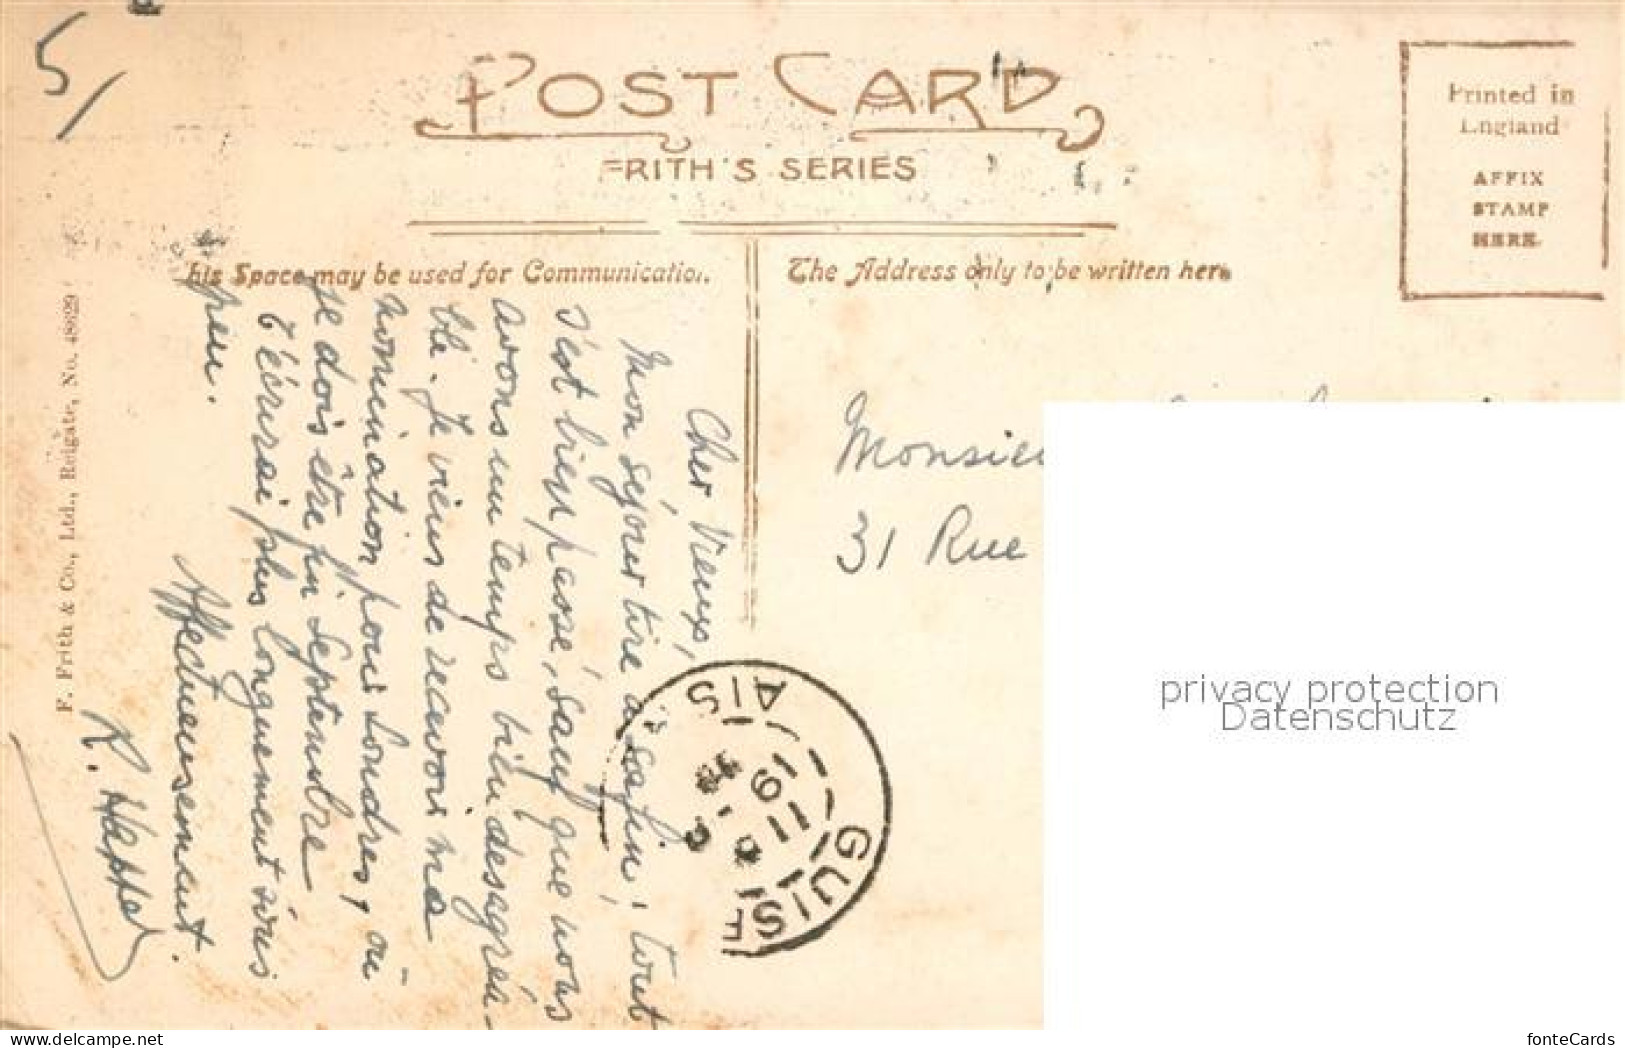 5/
POST CARD
FRITH'S SERIES
Printed in
England
AFFIX
STAMP
HERE.
his Space may be used for Communication.
The Address only to be written here
F. Frith & Co., Ltd., Reigate, No. 48629
Cher Vieux,
Mon séjour tire à sa fin, tout
s'est bien passé, sauf que nous
avons un temps bien desagréa-
ble. Je viens de recevoir ma
nomination pour Londres, où
je dois être fin Septembre
t'écrirai plus longuement sous
peu.
Affectueusement.
R.
Monsieu
31 Rue
GUISE
AIS
11
19
privacy protection
Datenschutz
www.delcampe.net
fonteCards